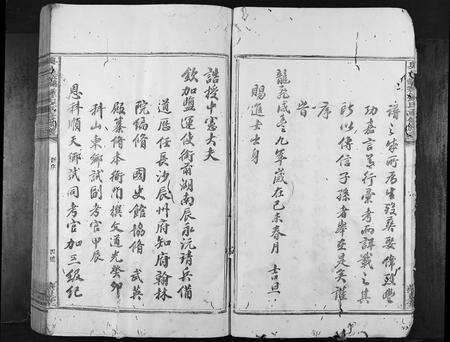 譜之家所應書殁葬娶偉烈豐
功嘉言景行彙者而詳載之其
所以傳信子孫者率在是矣謹
序
時
龍飛咸豐九年歲在己未春月吉旦
賜進士出身
誥授中憲大夫
欽加鹽運使銜前湖南辰永沅靖兵備
道歷任長沙辰州府知府翰林
院編修 國史館協脩 武英
殿纂修本衙門撰文道光癸卯
科山東鄉試副考官甲辰
恩科順天鄉試同考官加三級紀